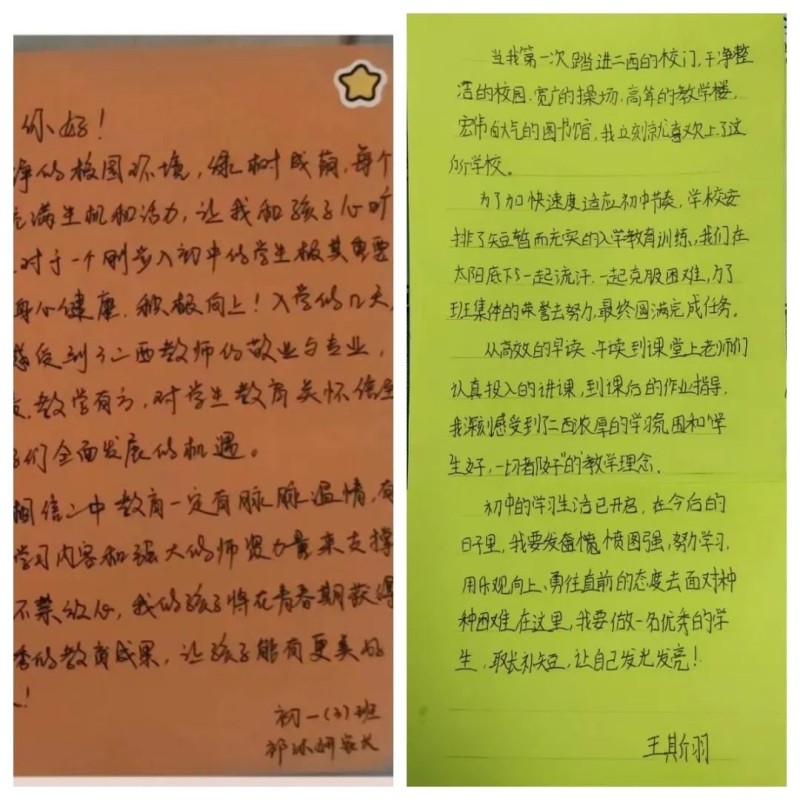 你好！
净的校园环境，绿树成荫，每个
充满生机和活力，让我和孩子心旷
对于一个刚步入初中的学生极其重要
身心健康、积极向上！入学的几天，
感受到了二西教师的敬业与专业，
教学有方，对学生教育关怀信
们全面发展的机遇。
相信二中教育一定有脉脉温情，有
学习内容和强大的师资力量来支撑
不禁放心，我的孩子将在青春期获得
秀的教育成果，让孩子能有更美好
！
初一(3)班
祁妍家长
当我第一次踏进二西的校门，干净整
洁的校园、宽广的操场、高耸的教学楼，
宏伟大气的图书馆，我立刻就喜欢上了这
所学校。
为了加快速度适应初中节奏，学校安
排了短暂而充实的入学教育训练，我们在
太阳底下一起流汗，一起克服困难，为了
班集体的荣誉去努力，最终圆满完成任务。
从高效的早读、午读到课堂上老师们
认真投入的讲课，到课后的作业指导，
我深刻感受到了二西浓厚的学习氛围和“学
生好，一切都好”的教学理念。
初中的学习生活已开启，在今后的
日子里，我要发奋图强，努力学习，
用乐观向上、勇往直前的态度去面对种
种困难，在这里，我要做一名优秀的学
生，取长补短，让自己发光发亮！
王斯羽